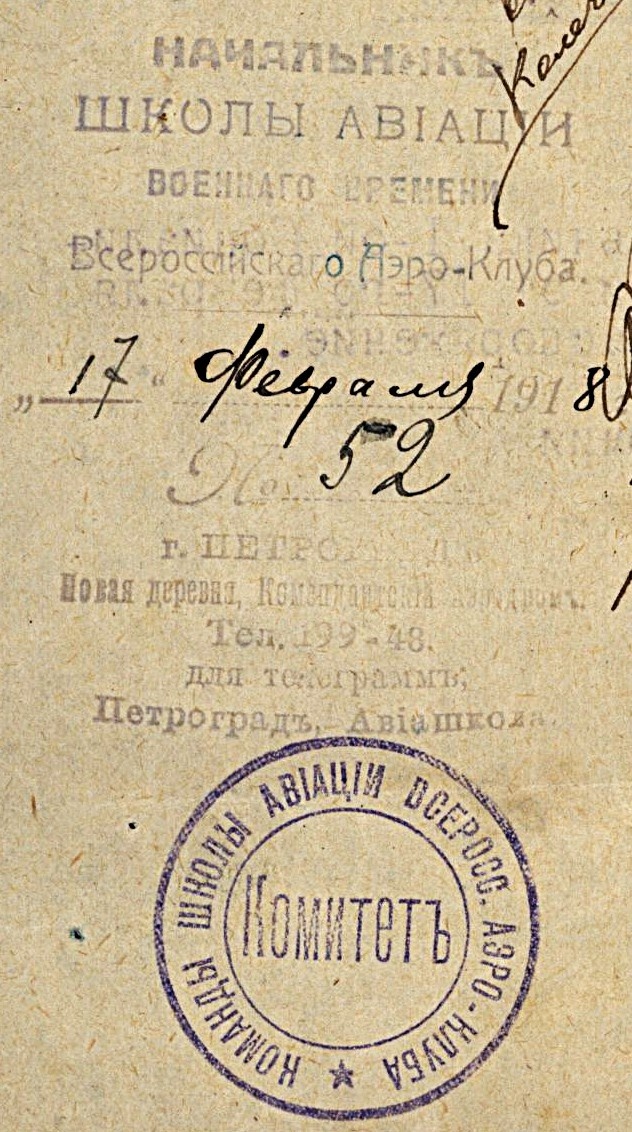 НАЧАЛЬНИКЪ
ШКОЛЫ АВІАЦІИ
ВОЕННАГО ВРЕМЕНИ
Всероссійскаго Аэро-Клуба.
„17“ Февраля 1918
№ 52
г. ПЕТРОГРАДЪ
Новая деревня, Комендантскій аэродромъ.
Тел. 199-48.
для телеграммъ:
Петроградъ, Авіашкола.
КОМАНДЫ ШКОЛЫ АВІАЦІИ ВСЕРОСС. АЭРО-КЛУБА
Комитетъ